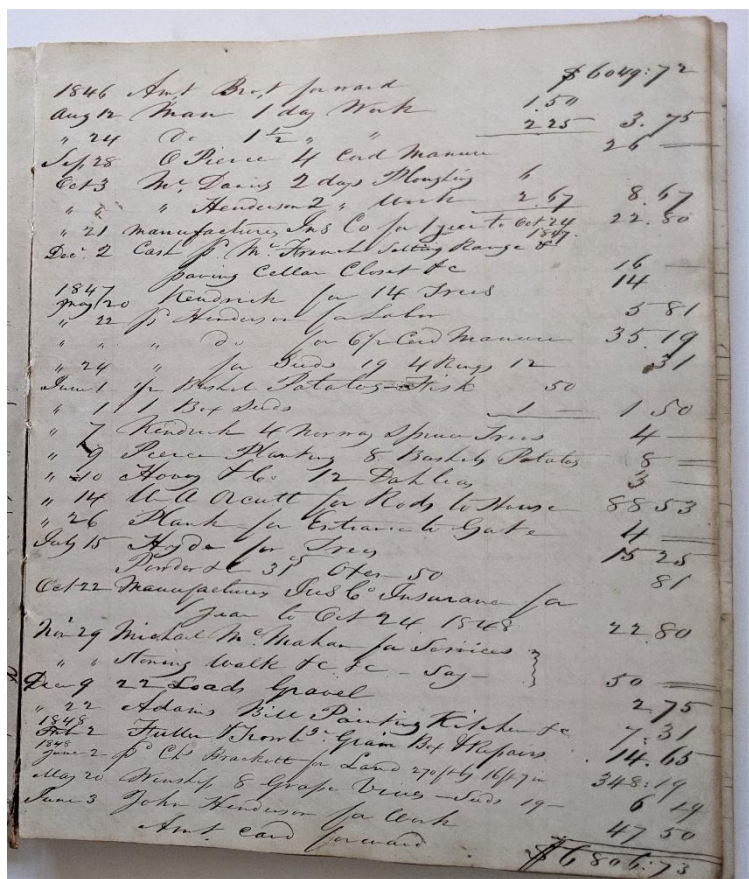 1846 Amt Brot forward $6049:72
Aug 12 Man 1 day Work 1.50
" 24 Do 1 1/2 " " 2 25 3.75
Sep 28 O Pierce 4 Cord Manure 26 —
Oct 3 Mc Danis 2 days Ploughing 6
" " " Henderson 2 " Work 2.67 8.67
" 21 Manufactures Ins Co for 1 year to Oct 24 1847. 22.80
Dec. 2 Cash pd Mc French Setting Range &
paving Cellar Closet &c 16 —
1847
May 20 Kendrick for 14 Trees 14
" 22 pd Henderson for Labor 5 81
" " " do for Cord Manure 35.19
" 24 " for Seeds 19 4 Rings 12 31
June 1 Bushel Potatos — Fisk 50
" 1 1 Box Seeds 1 — 1.50
" 7 Kendrick 4 Norway Spruce Trees 4 —
" 9 Peirce Planting 8 Baskets Potatos 8 —
" 10 Hovey & Co 12 Dahlias 3 —
" 14 W A Orcutt for Rods to House 88 53
" 26 Plank for Entrance to Gate 4 —
July 15 Hyde for Trees 15 25
Powder &c 31 50 81
Oct 22 Manufactures Ins Co Insurance for
year to Oct 24 1848 22.80
Nov 29 Michael McMahan for Services
" " Stoning Walk &c &c — Say — 50 —
Dec 9 22 Loads Gravel 2.75
" 22 Adams Bill Painting Kitchen &c 7.31
1848
Feb 2 Fuller & Grain Box & Repairs 14.65
1848
June 2 pd Chs Brackett for Land 270 ft by 16 ft 7 in 348:19
May 20 Winship 8 Grape Vines — Seeds 19 — 6 19
June 3 John Henderson for Work 47 50
Amt card forward $6806:73